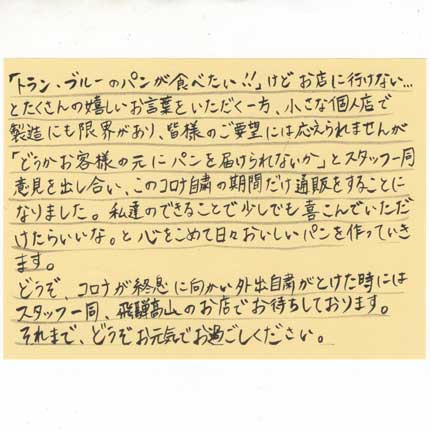 「トラン・ブルーのパンが食べたい!!」けどお店に行けない…
とたくさんの嬉しいお言葉をいただく一方、小さな個人店で
製造にも限界があり、皆様のご要望には応えられませんが
「どうかお客様の元にパンを届けられないか」とスタッフ一同
意見を出し合い、このコロナ自粛の期間だけ通販をすることに
なりました。私達のできることで少しでも喜こんでいただ
けたらいいな。と心をこめて日々おいしいパンを作っていき
ます。
どうぞ、コロナが終息に向かい外出自粛がとけた時には
スタッフ一同、飛騨高山のお店でお待ちしております。
それまで、どうぞお元気でお過ごしください。